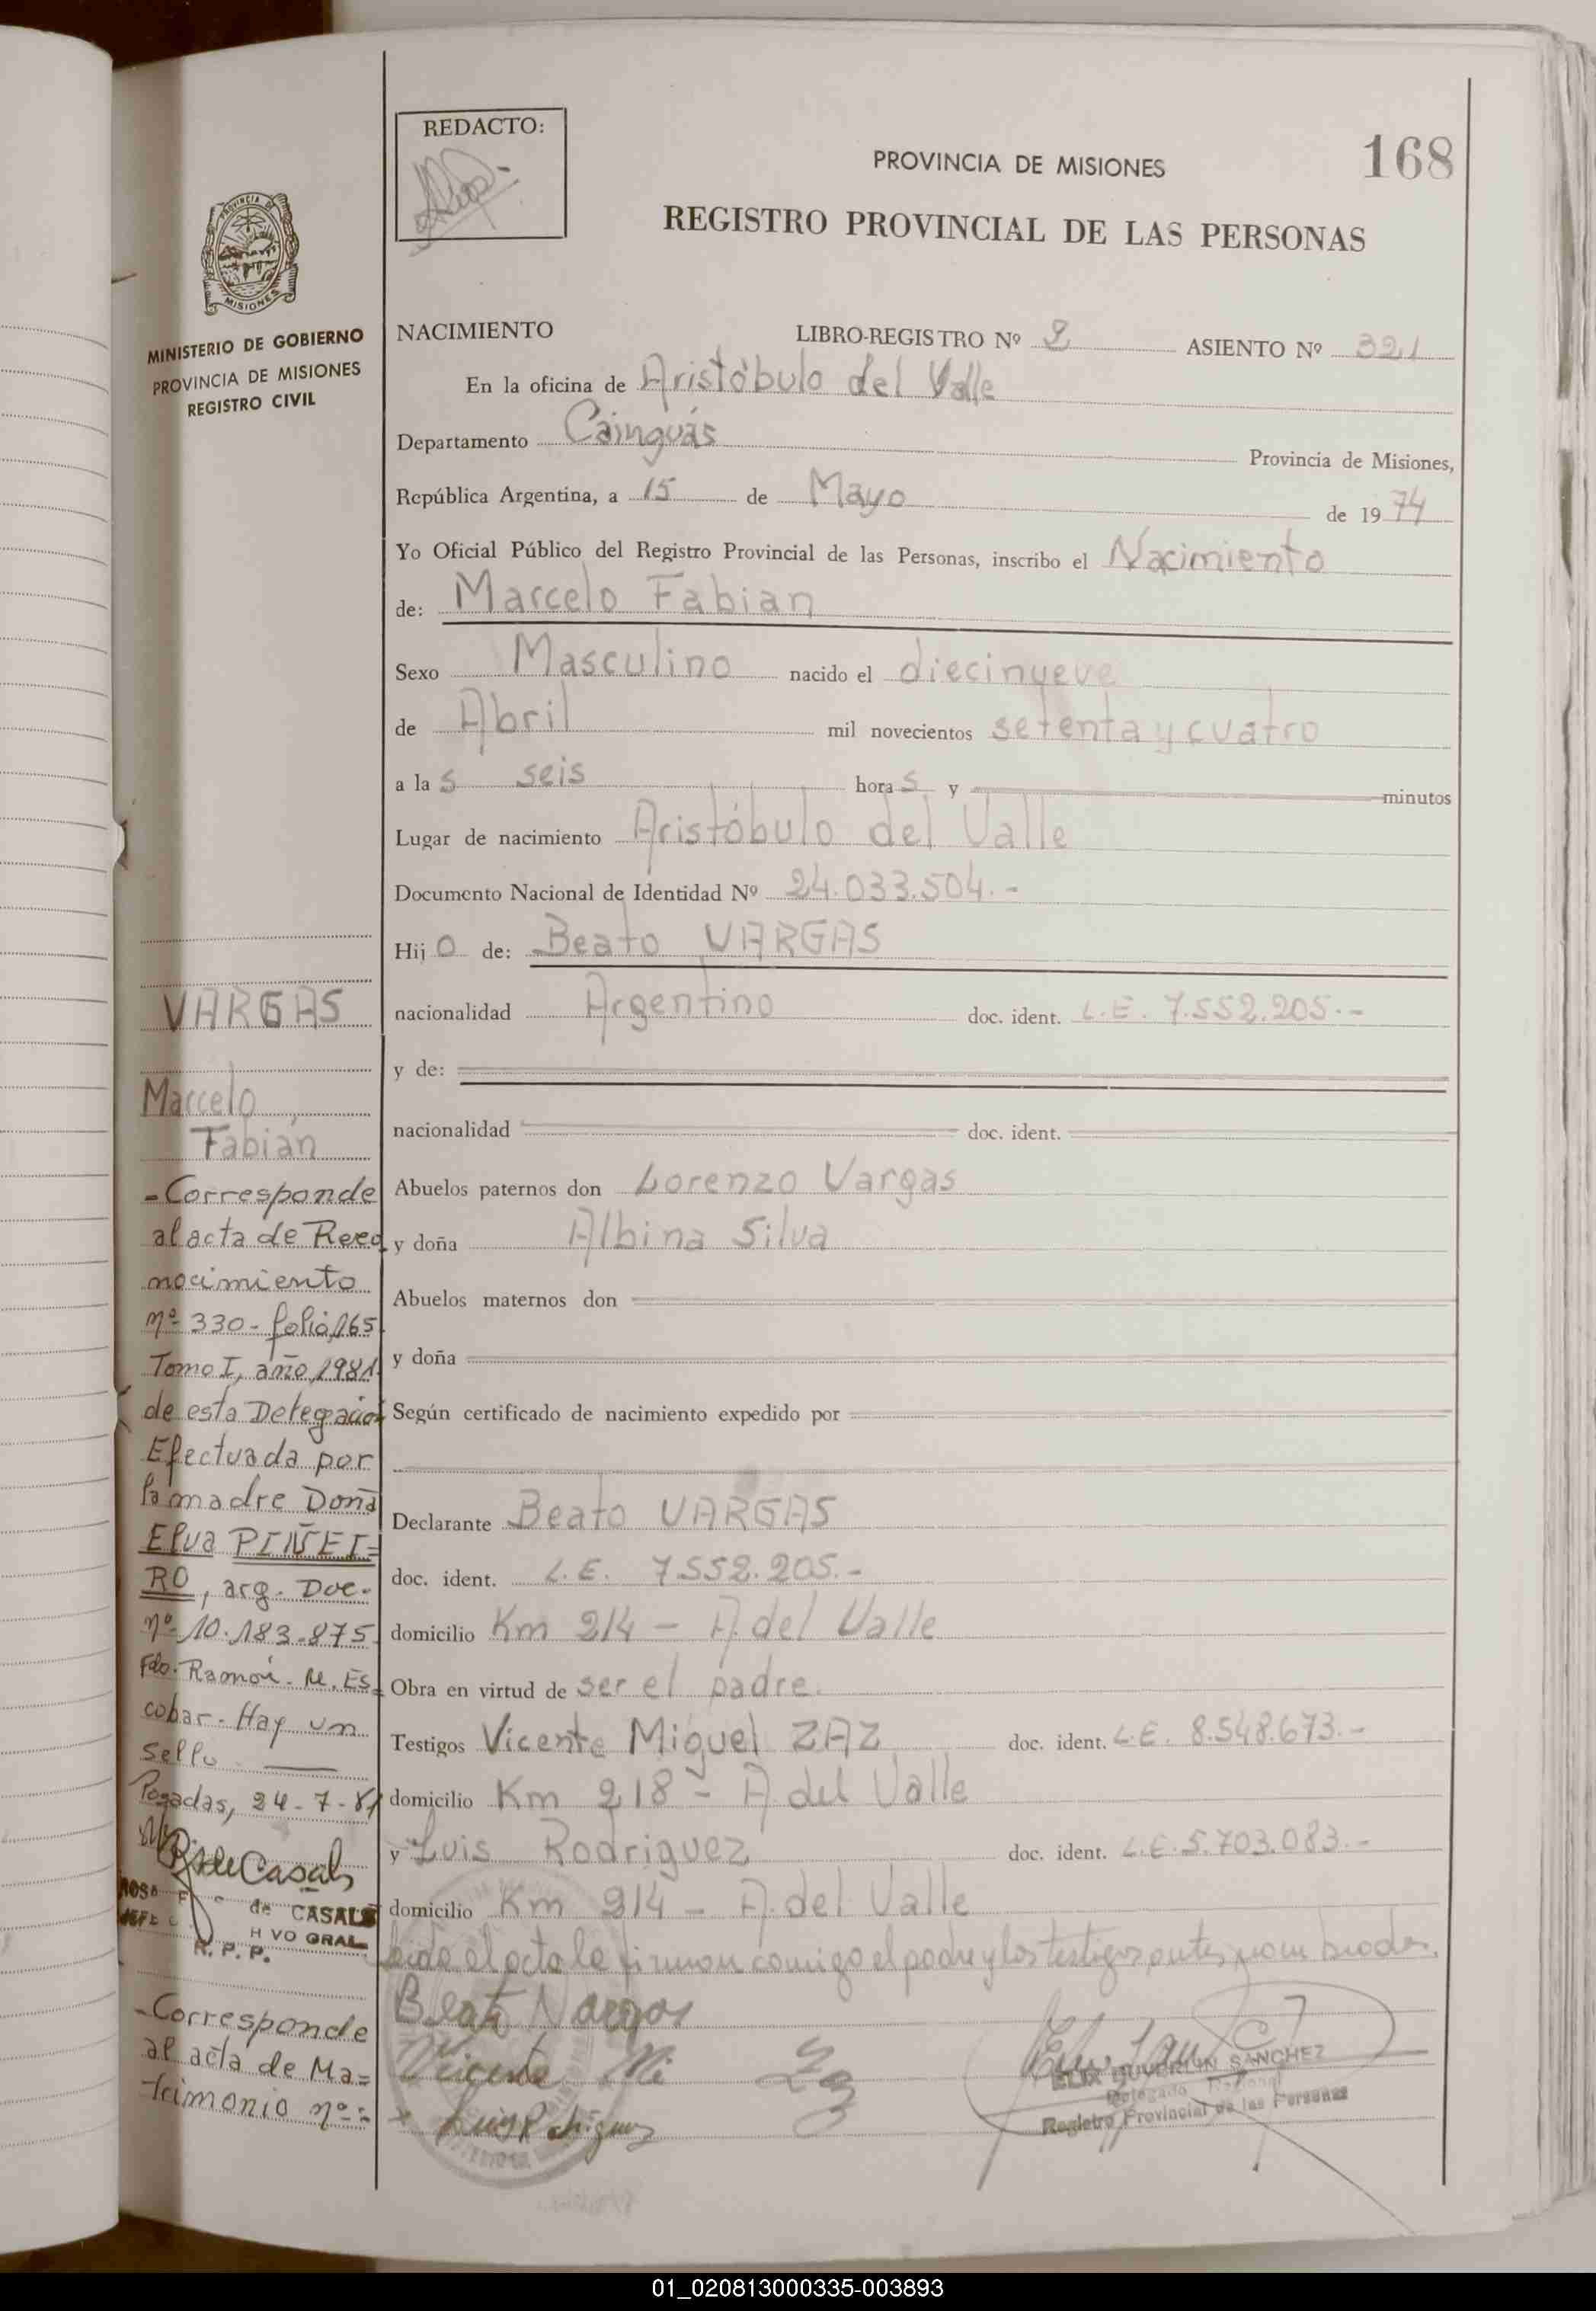 REDACTO:
PROVINCIA DE MISIONES
168
REGISTRO PROVINCIAL DE LAS PERSONAS
PROVINCIA DE
MISIONES
MINISTERIO DE GOBIERNO
PROVINCIA DE MISIONES
REGISTRO CIVIL
NACIMIENTO LIBRO-REGISTRO Nº 2 ASIENTO Nº 321
En la oficina de Aristóbulo del Valle
Departamento Cainguás Provincia de Misiones,
República Argentina, a 15 de Mayo de 1974
Yo Oficial Público del Registro Provincial de las Personas, inscribo el Nacimiento
de: Marcelo Fabian
Sexo Masculino nacido el diecinueve
de Abril mil novecientos setenta y cuatro
a las seis horas y minutos
Lugar de nacimiento Aristóbulo del Valle
Documento Nacional de Identidad Nº 24.033.504.-
Hijo de: Beato VARGAS
nacionalidad Argentino doc. ident. L.E. 7.552.205.-
y de:
nacionalidad doc. ident.
Abuelos paternos don Lorenzo Vargas
y doña Albina Silva
Abuelos maternos don
y doña
Según certificado de nacimiento expedido por
Declarante Beato VARGAS
doc. ident. L.E. 7.552.205.-
domicilio Km 214 - A. del Valle
Obra en virtud de ser el padre.
Testigos Vicente Miguel ZAZ doc. ident. L.E. 8.548.673.-
domicilio Km 218 - A. del Valle
y Luis Rodriguez doc. ident. L.E. 5.703.083.-
domicilio Km 214 - A. del Valle
el acta la firman comigo el padre y los testigos antes
Vicente Mi
SANCHEZ
Delegado
Registro Provincial de las Personas
VARGAS
Marcelo
Fabián
- Corresponde
al acta de Reco
nocimiento
nº 330 - folio 165
Tomo I, año 1981
de esta Delegación
Efectuada por
la madre Doña
Elva PIÑEI=
RO, arg. Doc.
nº 10.183.875.
Fdo. Ramón. M. Es=
cobar - Hay un
sello
Posadas, 24-7-81
de CASALS
H VO GRAL
R. P. P.
- Corresponde
al acta de Ma=
trimonio nº:
01_020813000335-003893